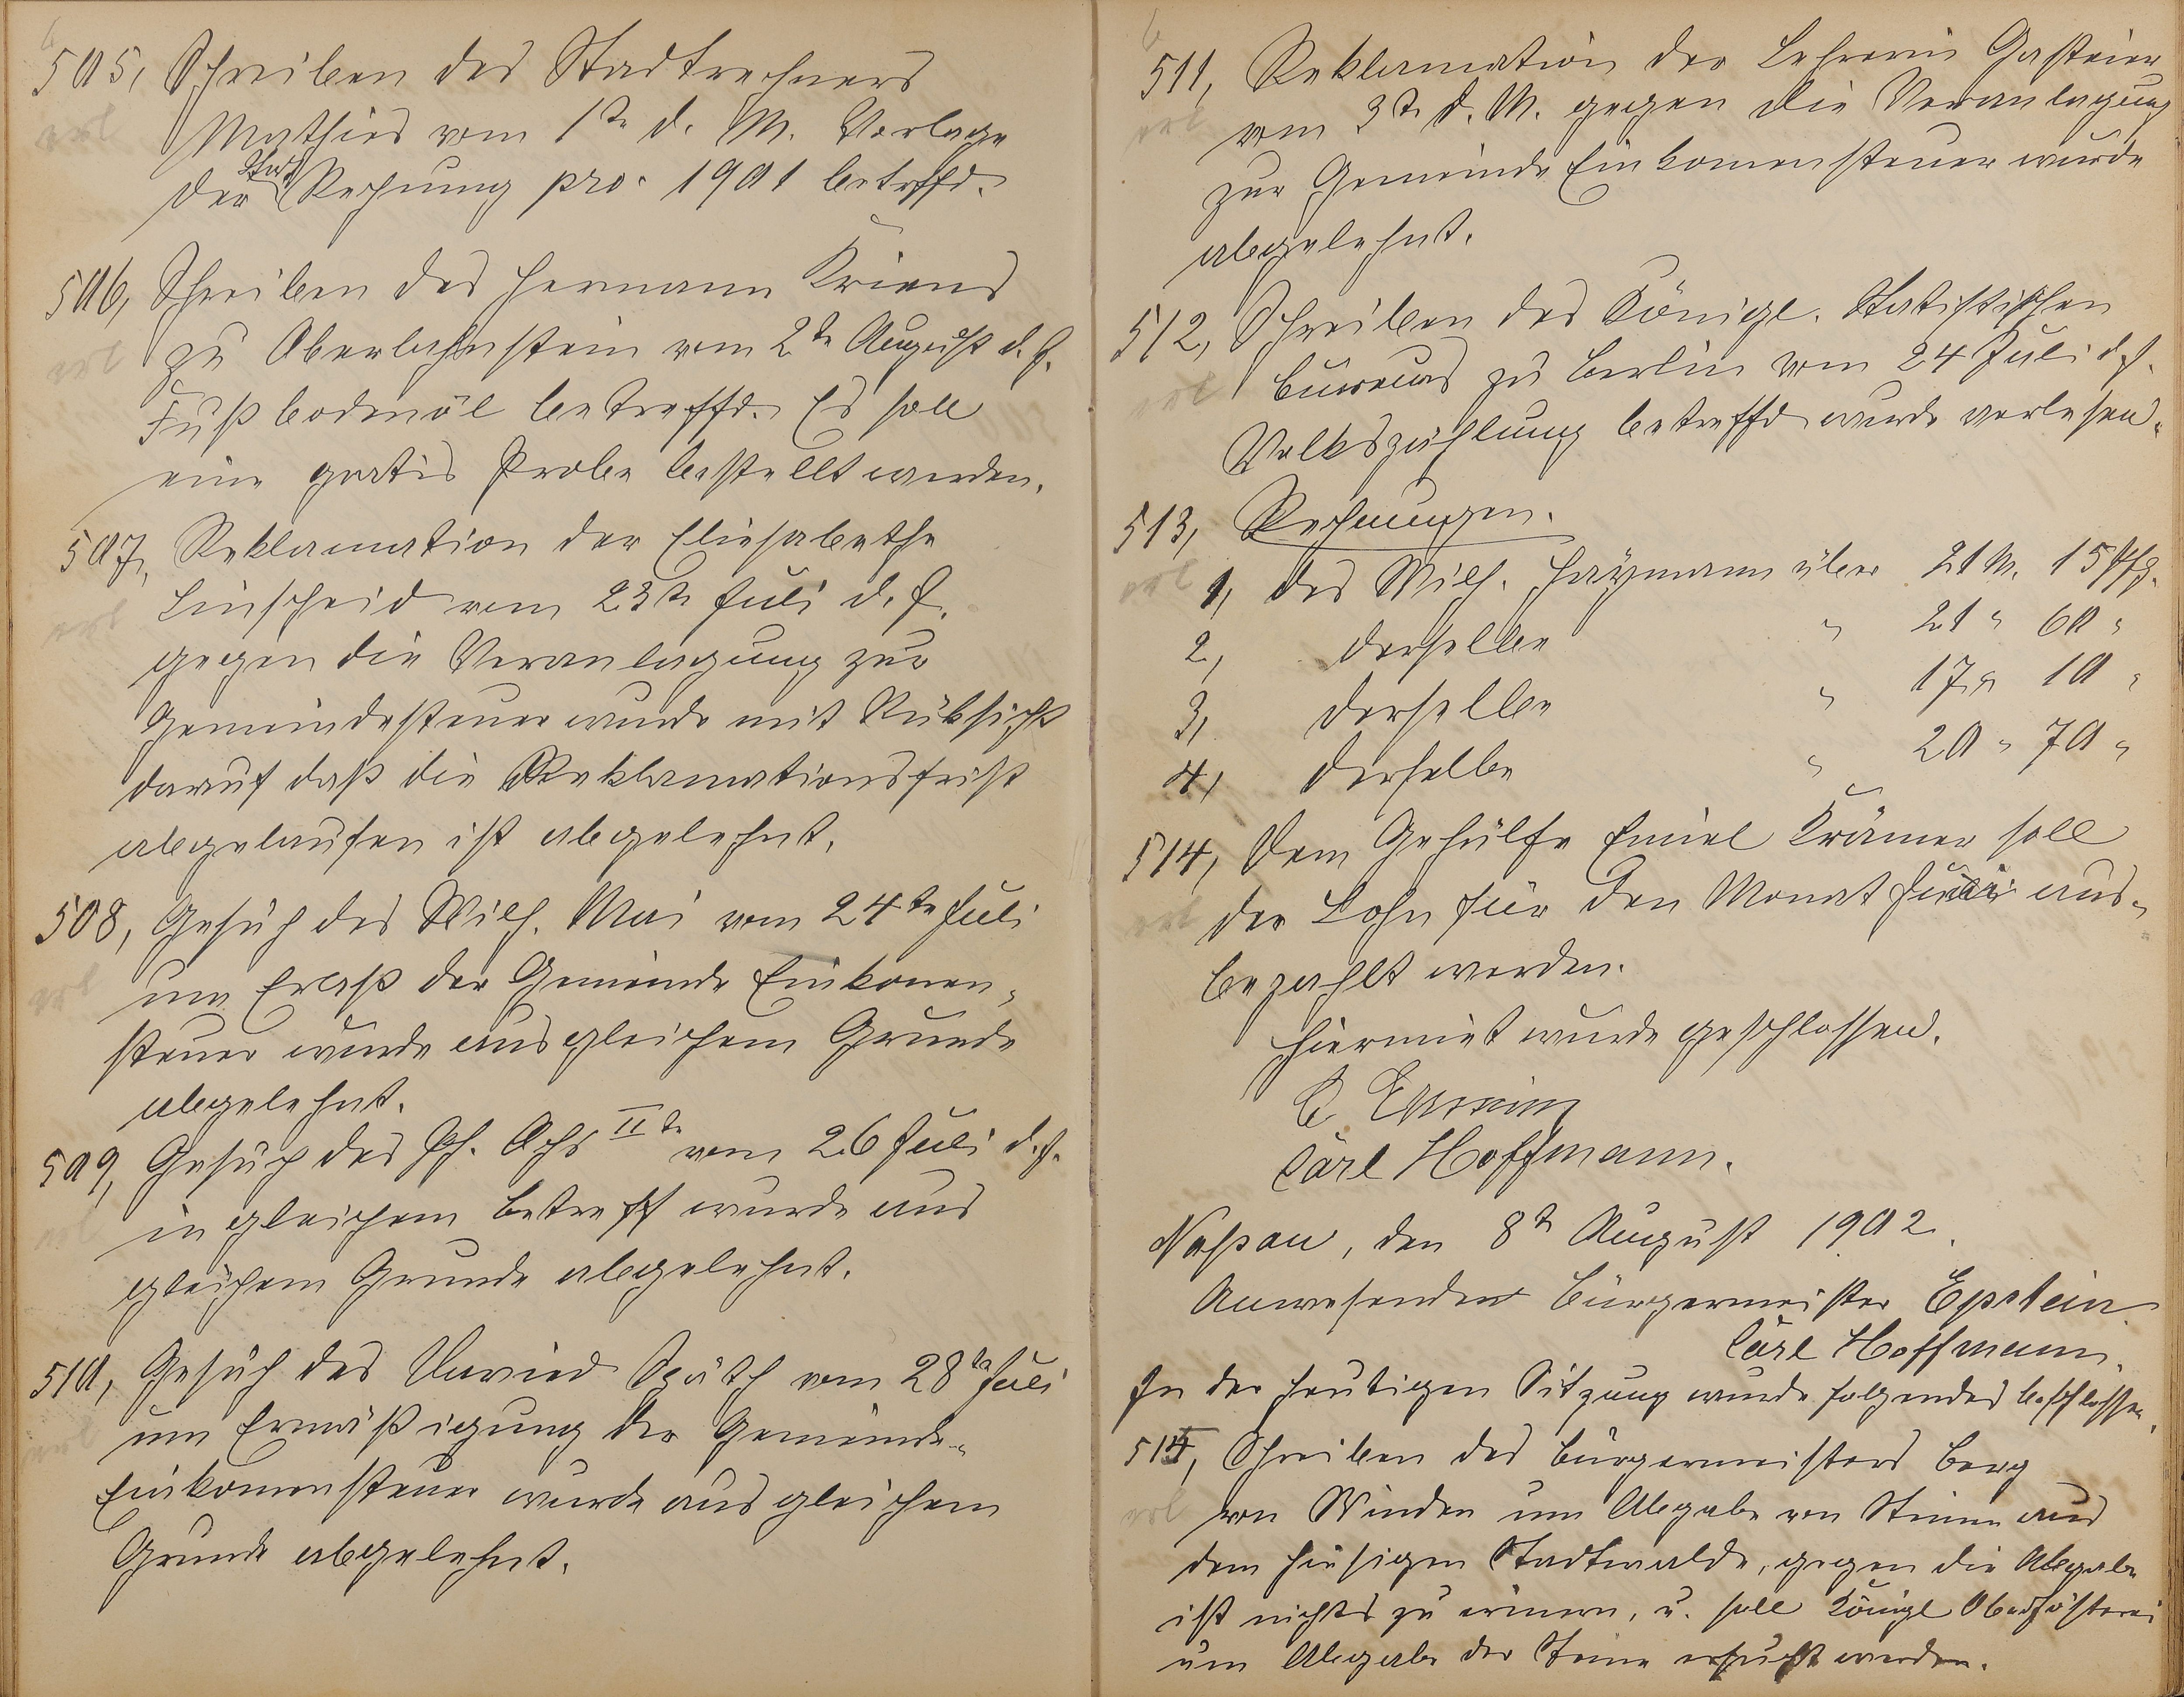 505, Schreiben des Stadtrechners
Mathies vom 1te d. M. Vorlage
der Stadt Rechnung pro. 1901 betrffd.
506, Schreiben des Hermann Kriens
zu Oberlahnstein vom 2te August d. J.
Fußbodenöl betreffd. Es soll
eine gratis Probe bestellt werden.
507, Reklamation der Eliesabethe
Linscheid vom 23te Juli d. J.
gegen die Veranlagung zur
Gemeindesteuer wurde mit Rüksicht
darauf daß die Reklamationsfrist
abgelaufen ist abgelehnt.
508, Gesuch des Wilh. Mai vom 24te Juli
um Erlaß der Gemeinde Einkomen-
steuer wurde aus gleichem Grunde
abgelehnt.
509, Gesuch des Ph. Ochs IIte vom 26 Juli d. J.
in gleichem Betreff wurde aus
gleichem Grunde abgelehnt.
510, Gesuch des Späth vom 28te Juli
um Ermäßigung der Gemeinde-
Einkomensteuer wurde aus gleichem
Grunde abgelehnt.
511, Reklamation der Lehrerin Gasteier
vom 3te d. M. gegen die Veranlagung
zur Gemeinde Einkomensteuer wurde
abgelehnt.
512, Schreiben des Königl. Statistischen
Bureaus zu Berlin vom 24 Juli d. J.
Volkszählung betreffd wurde verlesen.
513, Rechnungen.
1, des Wilh. Haymann über 21 M. 15 Pfg.
2, derselbe " 21 " 60 "
3, derselbe " 17 " 10 "
4, derselbe " 20 " 70 "
514, Dem Gehülfe Emiel Krämer soll
der Lohn für den Monat Juli aus-
bezahlt werden.
Hiermiet wurde geschlossen.
Carl Hoffmann.
Naßau, den 8te August 1902.
Anwesenden Bürgermeister Epstein
Carl Hoffmann.
In der heutigen Sitzung wurde folgendes beschlossen.
515, Schreiben des Bürgermeisters Berg
von Winden um Abgabe von Steinen aus
dem hiesigen Stadtwalde, gegen die Abgabe
ist nichts zu erinern, u. soll Königl Oberförsterei
um Abgabe der Steine ersucht werden.